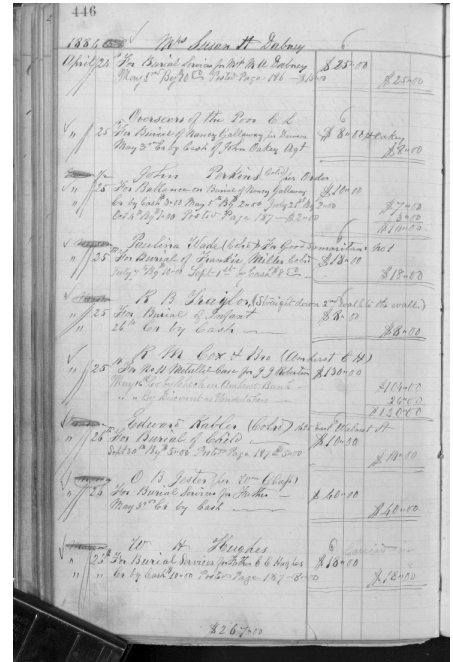 446
1886 Mrs Susan H Dabney
April 23 For Burial Services for Mr M A Dabney $25=00
May 1st By Posted Page 186 $25=00
Overseers of the Poor C L
" 25 For Burial of Nancy Gallaway for Duncan $8=00 Oakey
May 3rd Cr by Cash of John Oakey Agt $8=00
John Perkins (Cold) for Order
" 25 For Ballance on Burial of Nancy Gallaway $10=00
Cr by Cash 3=00 May 1st By 2=00 July 25th By 2=00 $7=00
By 3=00 Posted Page 187 $2=00 3=00
$10=00
Paulina Wade (Cold) For Good Samaritans No 1
" 25 For Burial of Frankie Miller Cold $18=00
July By Sept 1st by Cash $8 $18=00
R B Traylor, (Straight down 2nd to the wall.)
" 25 For Burial of Infant $8=00
26th Cr by Cash $8=00
R M Cox & Bro (Amherst C H)
" 25 For No Metallic Case for J J Roberton $130=00
May Cr by Check on Amherst Bank $104=00
" " By Discount as 26=00
$130=00
Edward Kabler (Cold) Walnut St
" 26th For Burial of Child $10=00
Sept 30th By 5=00 Posted Page 187 5=00 $10=00
O B Jester (for Glass)
" 26 For Burial Services for Father $40=00
May 3rd Cr by Cash $40=00
W H Hughes
" 26th For Burial Services for Father C C Hughes $18=00
" " Cr by Cash 10=00 Posted Page 187 8=00 $18=00
$267=00